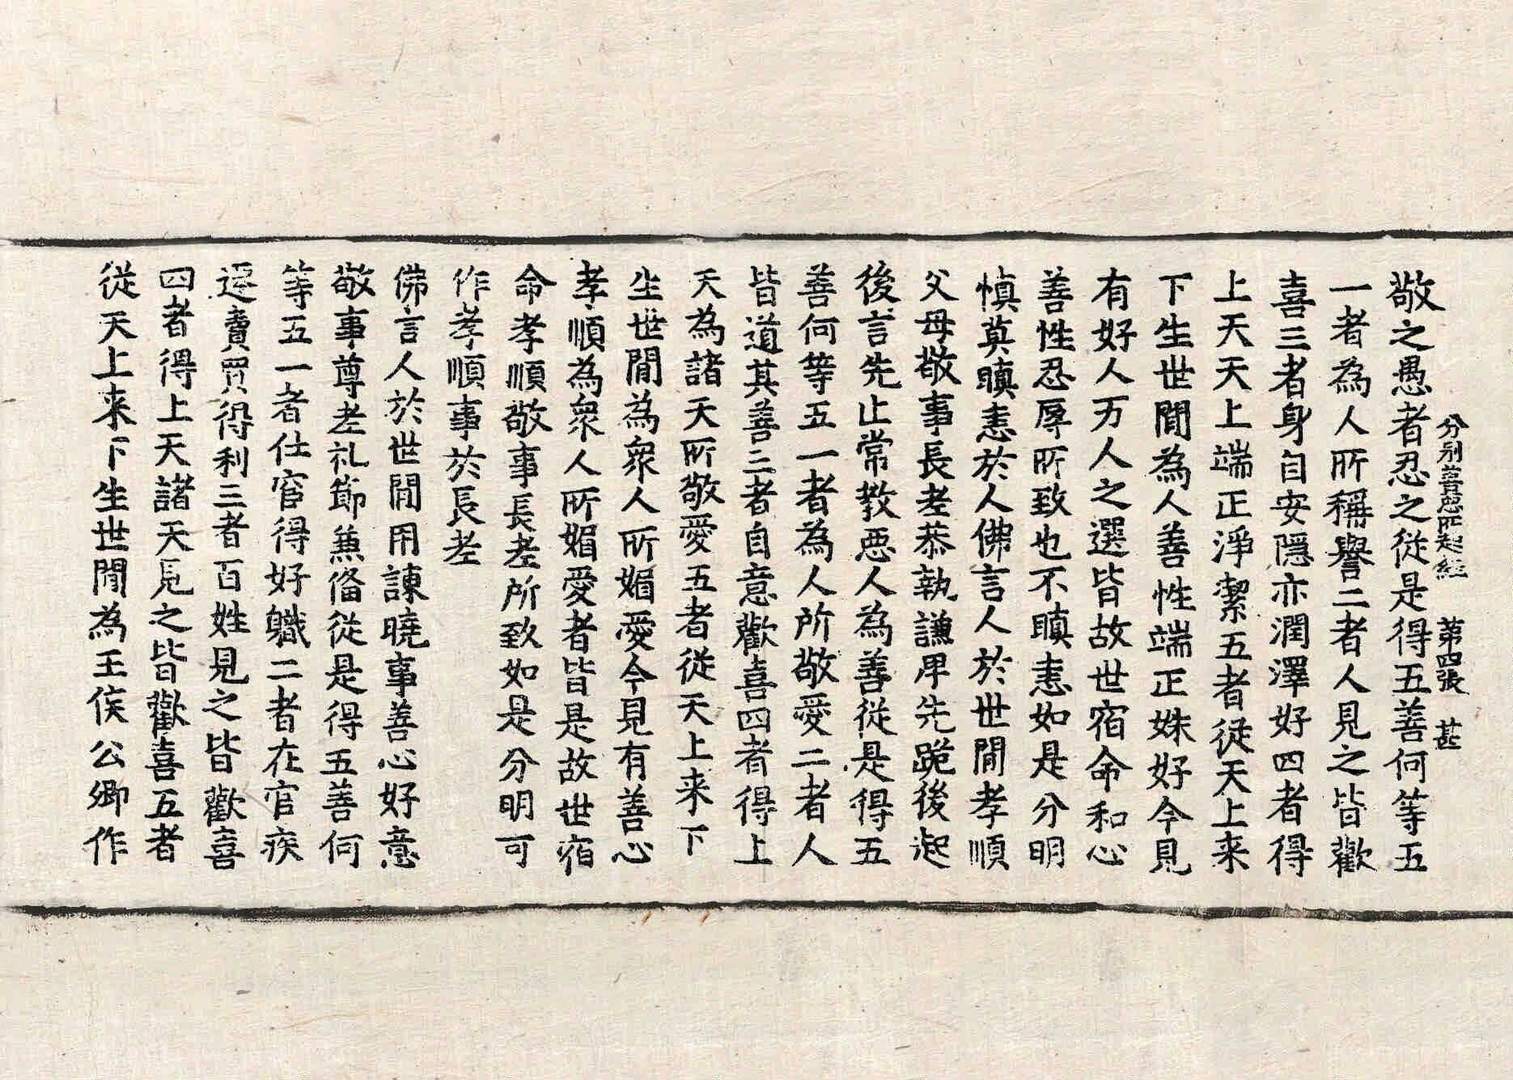 分別善惡所起經 第四張 甚
敬之愚者忍之從是得五善何等五
一者為人所稱譽二者人見之皆歡
喜三者身自安隱亦潤澤好四者得
上天天上端正淨潔五者從天上来
下生世間為人善性端正姝好今見
有好人万人之選皆故世宿命和心
善性忍辱所致也不瞋恚如是分明
慎莫瞋恚於人佛言人於世間孝順
父母敬事長老恭執謙卑先跪後起
後言先止常教惡人為善從是得五
善何等五一者為人所敬愛二者人
皆道其善三者自意歡喜四者得上
天為諸天所敬愛五者從天上来下
生世間為衆人所媚愛今見有善心
孝順為衆人所媚愛者皆是故世宿
命孝順敬事長老所致如是分明可
作孝順事於長老
佛言人於世間用諫曉事善心好意
敬事尊老礼節兼俻從是得五善何
等五一者仕官得好軄二者在官疾
遷賣買得利三者百姓見之皆歡喜
四者得上天諸天見之皆歡喜五者
從天上来下生世間為王侯公卿作